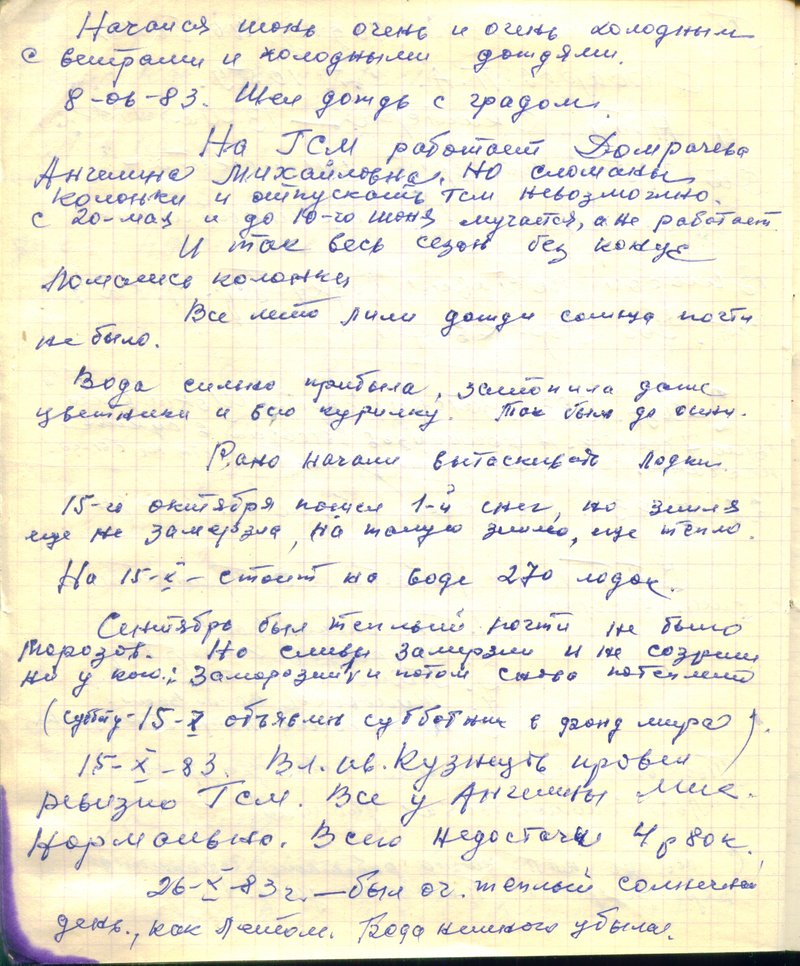 Начался июнь очень и очень холодным
с ветрами и холодными дождями.
8-06-83. Шел дождь с градом.
На ГСМ работает Домрачева
Ангелина Михайловна. Но сломаны
колонки и отпускать ГСМ невозможно.
с 20-мая и до 10-го июня мучается, а не работает.
И так весь сезон без конца
ломались колонки
Все лето лили дожди солнца почти
не было.
Вода сильно прибыла, затопила даже
цветники и всю курилку. Так было до осени.
Рано начали вытаскивать лодки
15-го октября пошел 1-й снег, но земля
еще не замерзла, на талую землю, еще тепло.
На 15-X- стоит на воде 270 лодок.
Сентябрь был теплый почти не было
морозов. Но сливы замерзли и не созрели
ни у кого. Заморозил и потом снова потеплело
(субботу-15-X объявлен субботник в фонд мира).
15-X-83. Вл. Ив. Кузнецов провел
ревизию ГСМ. Все у Ангелины Мих.
Нормально. Всего недостачи 4р 80к.
26-X-83г. - был оч. теплый солнечный
день, как летом. Вода немного убыла.